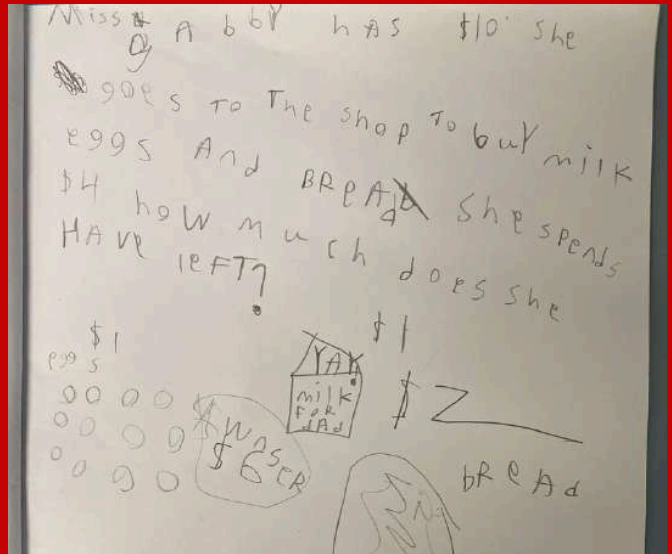 Miss Abby has $10 she
goes to The shop To buy milk
eggs And BReAd she spends
$4 how much does she
HAVe leFT?
$1
eggs
$1
YAY
milk
FoR
dAd
$2
bReAd
AWnSeR
$6